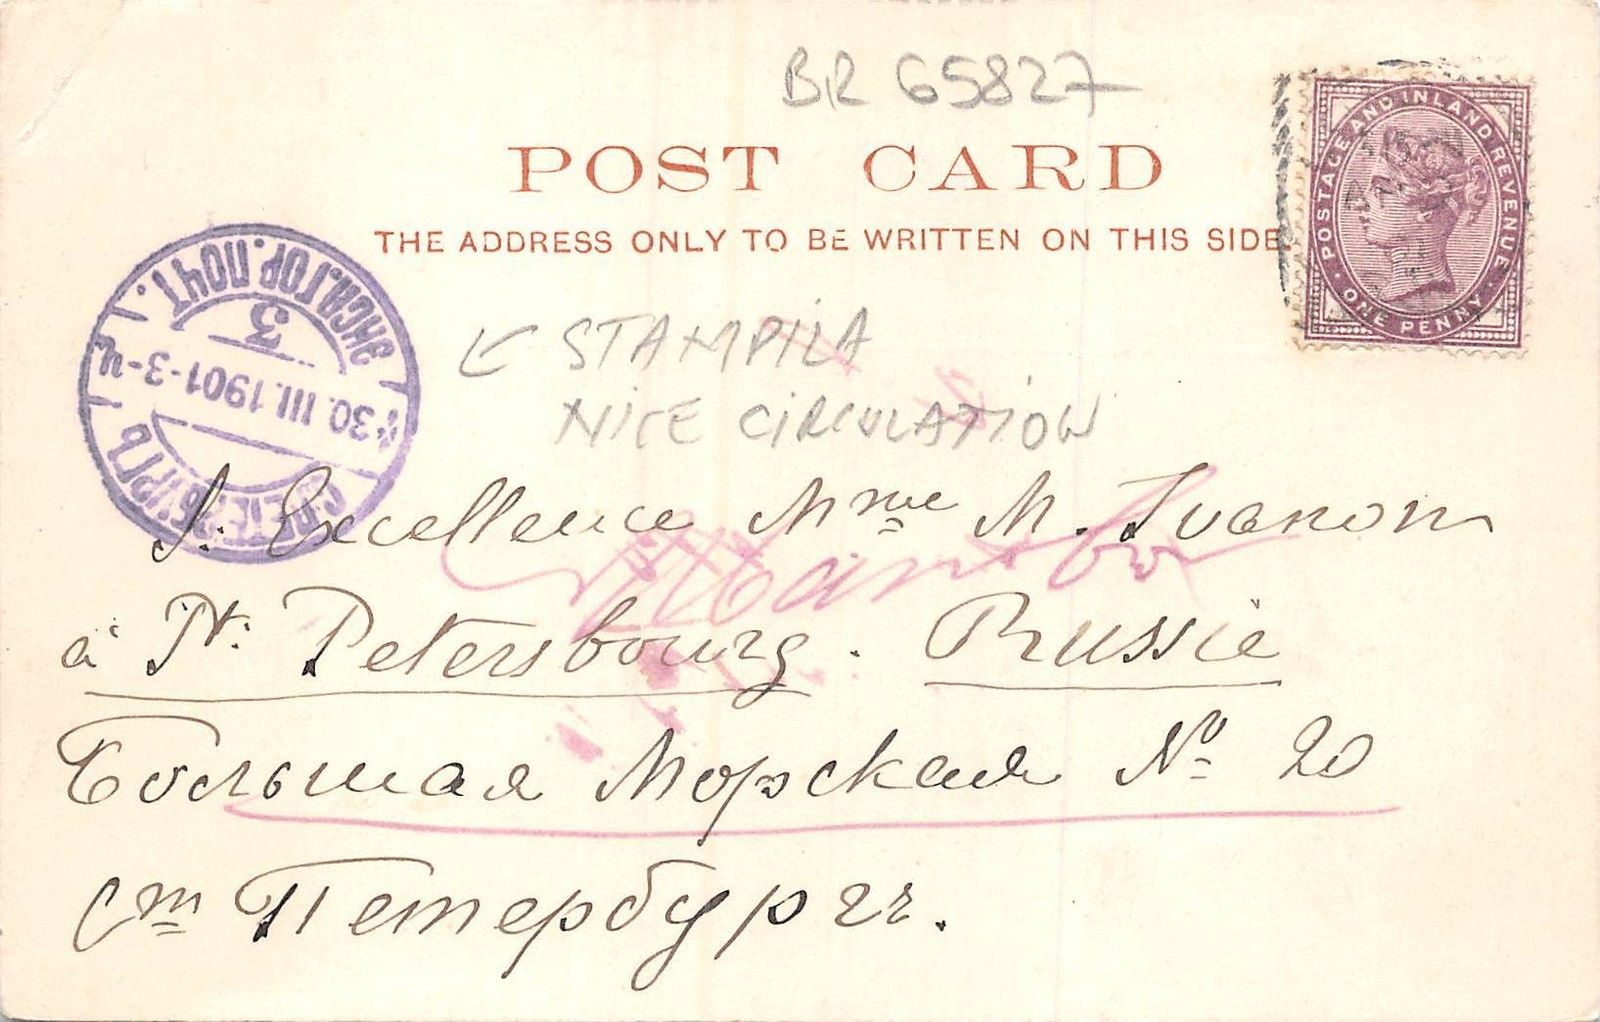 BR 65827
POST CARD
THE ADDRESS ONLY TO BE WRITTEN ON THIS SIDE.
POSTAGE AND INLAND REVENUE
ONE PENNY
ЭКСП.ГОР.ПОЧТ.
3
30.III.1901-3-Ч
С.ПЕТЕРБУРГЪ
STAMPILA
NICE CIRCULATION
Excellence Mme M.
à St. Petersbourg. Russie
Большая Морская № 20
Ст Петербургъ.